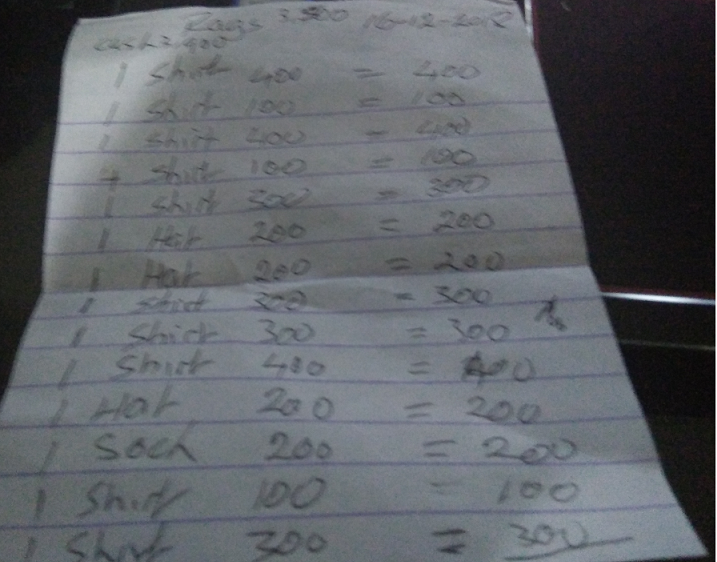 Rags 3.500 16-12-2012
cash 3.900
1 Shirt 400 = 400
1 Shirt 100 = 100
1 Shirt 400 = 400
4 Shirt 100 = 100
1 Shirt 300 = 300
1 Hat 200 = 200
1 Hat 200 = 200
1 Shirt 300 = 300
1 Shirt 300 = 300
1 Shirt 400 = 400
1 Hat 200 = 200
1 Sock 200 = 200
1 Shirt 100 = 100
1 Shirt 300 = 300